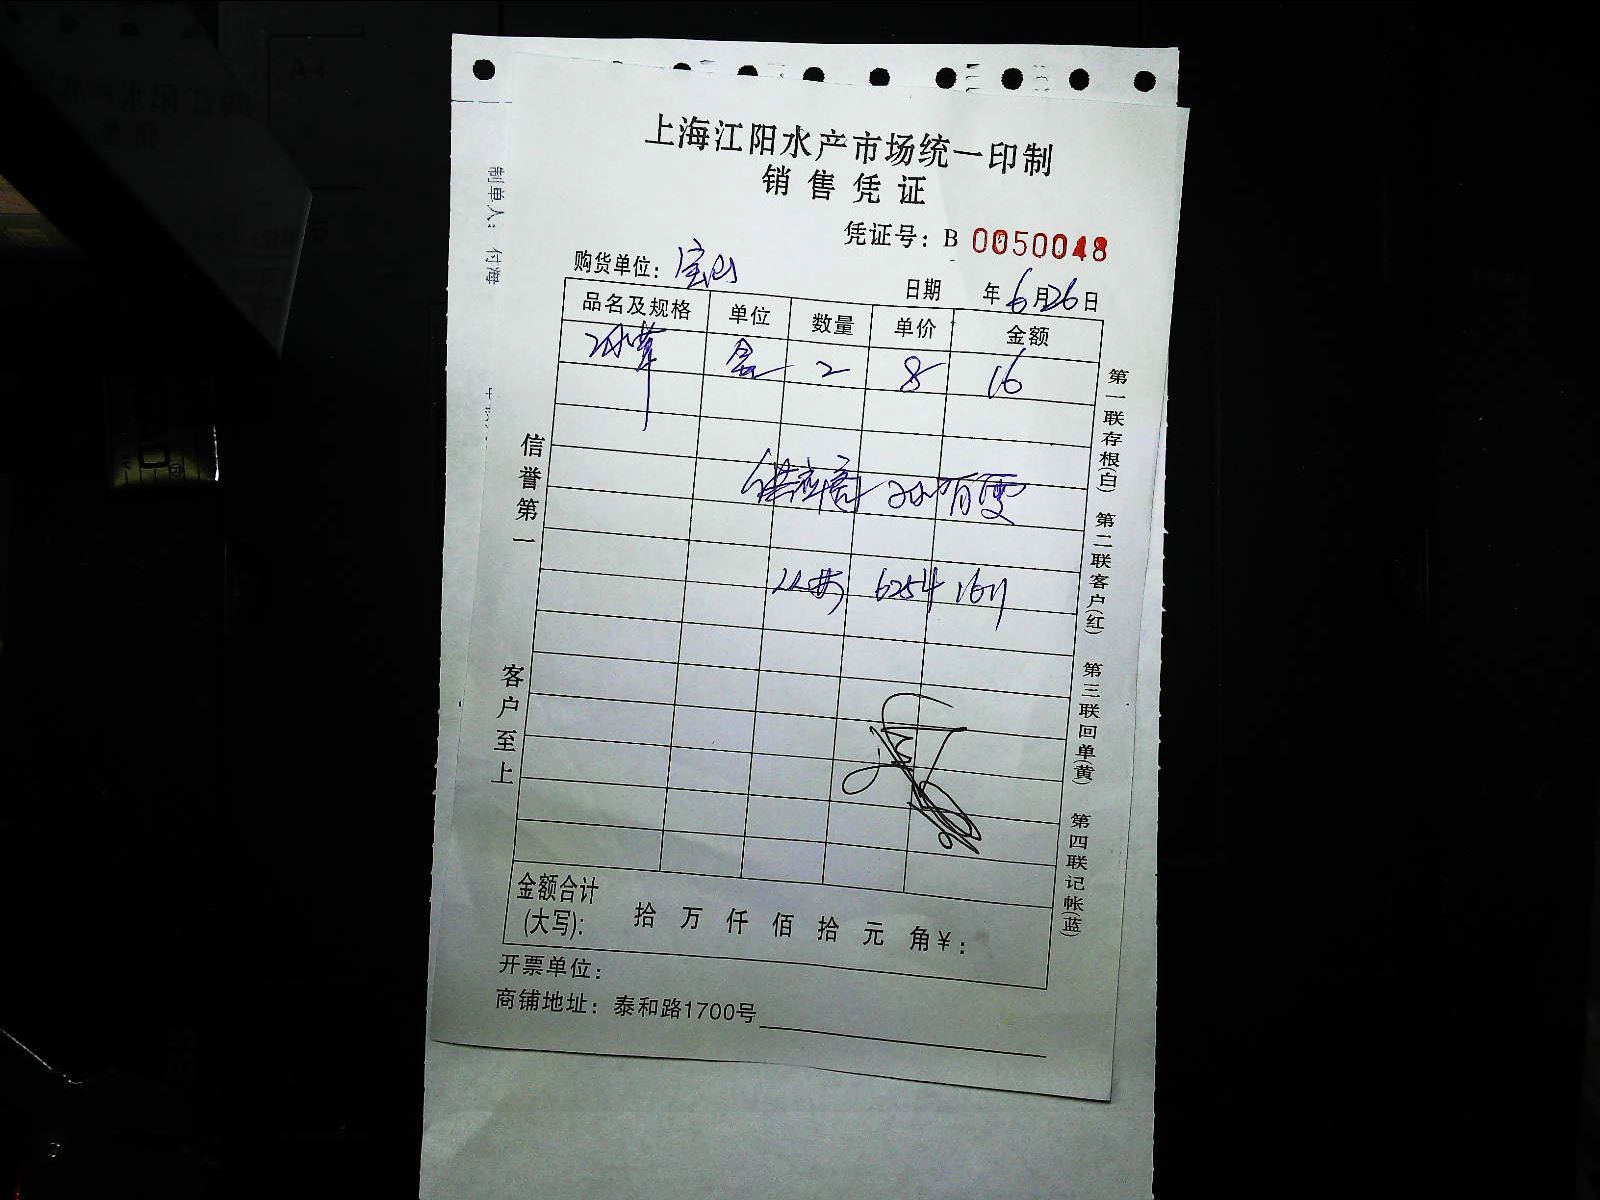 上海江阳水产市场统一印制
销售凭证
凭证号：B 0050048
购货单位：宝山
日期 年6月26日
品名及规格 单位 数量 单价 金额
冰草 盒 2 8 16
供应商 孙有雯
6254 1611
金额合计
(大写)： 拾 万 仟 佰 拾 元 角¥：
开票单位：
商铺地址：泰和路1700号
信誉第一
客户至上
第一联存根(白) 第二联客户(红) 第三联回单(黄) 第四联记帐(蓝)
制单人： 付海